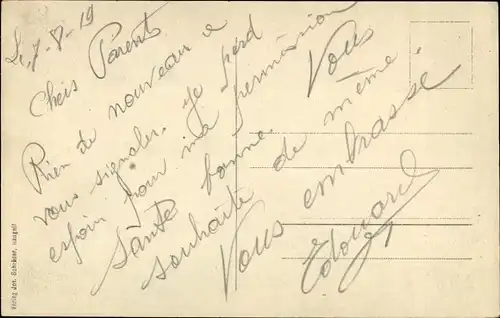 Le, 7-8-19
Chers Parents
Rien de nouveau a
vous signaler. je perd
espoir pour ma permission
Santé bonne. Vous
souhaite de même.
Vous embrasse
Edouard
Verlag Jos.